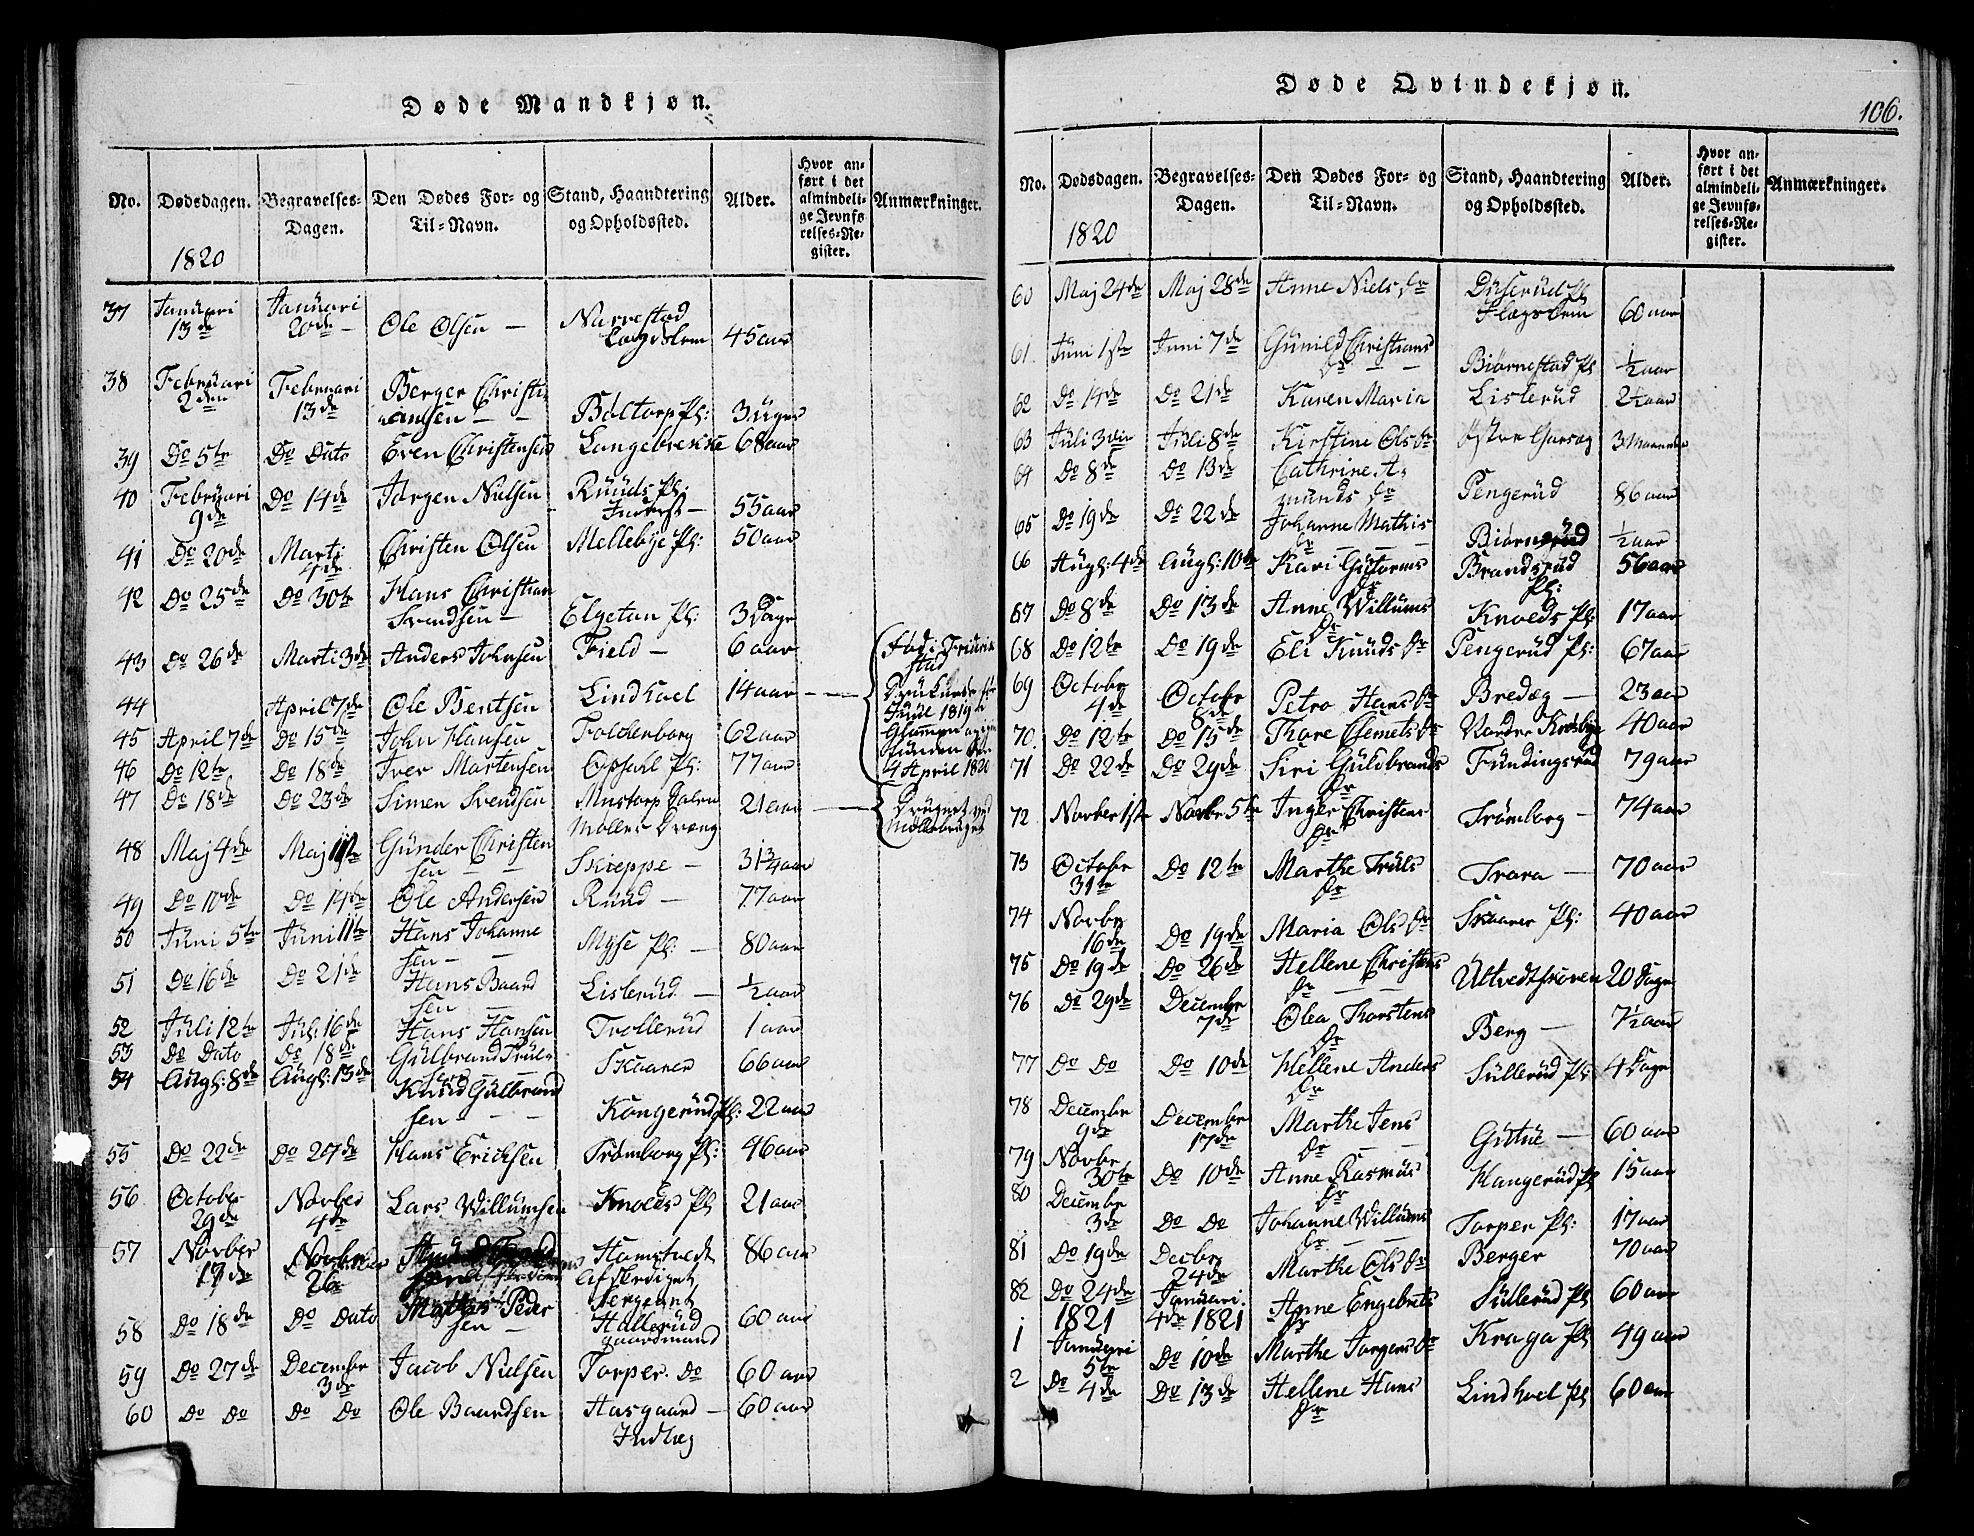 Døde Mandkjøn.
No. Dødsdagen. Begravelses-Dagen. Den Dødes For- og Til-Navn. Stand, Haandtering og Opholdssted. Alder. Hvor anført i det almindelige Jevnførelses-Register. Anmærkninger.
1820
37 Januari 13de Januari 20de Ole Olsen Narvestad 45 aar
38 Februari 2den Februari 13de Berger Christiansen Böltorp Pl: 3 uger
39 Do 5te Do Dato Even Christensen Langebrekke 68 aar
40 Februari 9de Do 14de Jørgen Nielsen Rüüds Pl: Inderst 55 aar
41 Do 20de Marti 4de Christen Olsen Mellebye Pl: 50 aar
42 Do 25de Do 30te Hans Christian Svendsen Elgetun Pl: 3 Dage
43 Do 26de Marti 3de Anders Johnsen Field 6 aar
44 April 7de Ole Bentsen Lindhoel 14 aar
45 April 7de Do 15de John Hansen Foldenborg 62 aar
46 Do 12te Do 18de Iver Martensen Opsahl Pl: 77 aar
4 April 1820
47 Do 18de Do 23de Simen Svendsen Møllers Dræng 21 aar
48 Maj 4de Maj 11te Günder Christensen Skieppe 31¾ aar
49 Do 10de Do 14de Ole Andersen Ruud 77 aar
50 Juni 5te Juni 11te Hans Johannesen Myse Pl: 80 aar
51 Do 16de Do 21de Hans Baardsen Lislerüd ½ aar
52 Juli 12te Jul: 16de Hans Hansen Trollerüd 1 aar
53 Do Dato Do 18de Gulbrand Trulsen Skaarer 66 aar
54 Augs: 8de Augs: 13de Knud Gulbrandsen Kongerüd Pl: 22 aar
55 Do 22de Do 27de Hans Ericksen Trømborg Pl: 46 aar
56 October 29de Novber 4de Lars Willumsen Knolds Pl 21 aar
57 Novber 17de Novber 26 Hamstvedt afskediget Sergeant 86 aar
58 Do 18de Do Dato Mathis Pedersen Hallerüd gaardmand 60 aar
59 Do 27de December 3de Jacob Nielsen Torper Do 60 aar
60 Do Do Do Do Ole Baardsen Aasgaard Indlæg 60 aar
Døde Qvindekjøn.
106.
No. Dødsdagen. Begravelses-Dagen. Den Dødes For- og Til-Navn. Stand, Haandtering og Opholdssted. Alder. Hvor anført i det almindelige Jevnførelses-Register. Anmærkninger.
1820
60 Maj 24de Maj 28de Anne Niels Dr 60 aar
61. Juni 1ste Juni 7de Gunild Christians Dr Biørnestad Pl ½ aar
62 Do 14de Do 21de Karen Maria Lislerud 2½ aar
63 Juli 3die Juli 8de Kirstine Ols Dr Østre 3 Maaneder
64 Do 8de Do 13de Cathrine Amunds Dr Pengerüd 86 aar
65 Do 19de Do 22de Johanne Mathis Dr Biørnerüd ½ aar
66 Augs: 4de Augs: 10de Kari Gutorms Dr Brandsrüd Pl: 56 aar
67 Do 8de Do 13de Anne Willums Dr Knolds Pl 17 aar
68 Do 12te Do 19de Eli Knuds Dr Pengerüd Pl: 67 aar
69 Octobr 4de Octobr 8de Petro Hans Dr Bredæg 23 aar
70. Do 12te Do 15de Thore Clemets Dr 40 aar
71 Do 22de Do 29de Siri Guldbrands Dr Fündingsrüd 79 aar
72 Novber 1ste Novbr 5te Inger Christens Dr Trømborg 74 aar
73 Octobr 31te Do 12te Marthe Truls Dr Trara 70 aar
74 Novbr 16de Do 19de Maria Ols Dr Skaarer Pl: 40 aar
75 Do 19de Do 26de Hellene Christens Dr Ultvedtskoven 20 Dage
76 Do 29de Decembr 7de Olea Thorstens Dr Berg 7½ aar
77 Do Do Do 10de Hellene Anders Dr Süllerüd Pl 4 Dage
78 Decembr 9de Decembr 17de Marthe Jens Dr Gutüe 60 aar
79 Novbr 30te Do 10de Anne Rasmus Dr Hangerüd Pl 15 aar
80 Decembr 3de Do Do Johanne Willums Dr Torper Pl: 17 aar
81 Do 19de Decbr 24de Marthe Ols Dr Berger 70 aar
82 Do 24de Januari 4de 1821 Anne Engebrets Dr Süllerüd Pl 60 aar
1821
1 Januari 5te Do 10de Marthe Jørgens Dr Kraga Pl 49 aar
2 Do 4de Do 13de Hellene Hans Dr Lindhoel Pl 60 aar